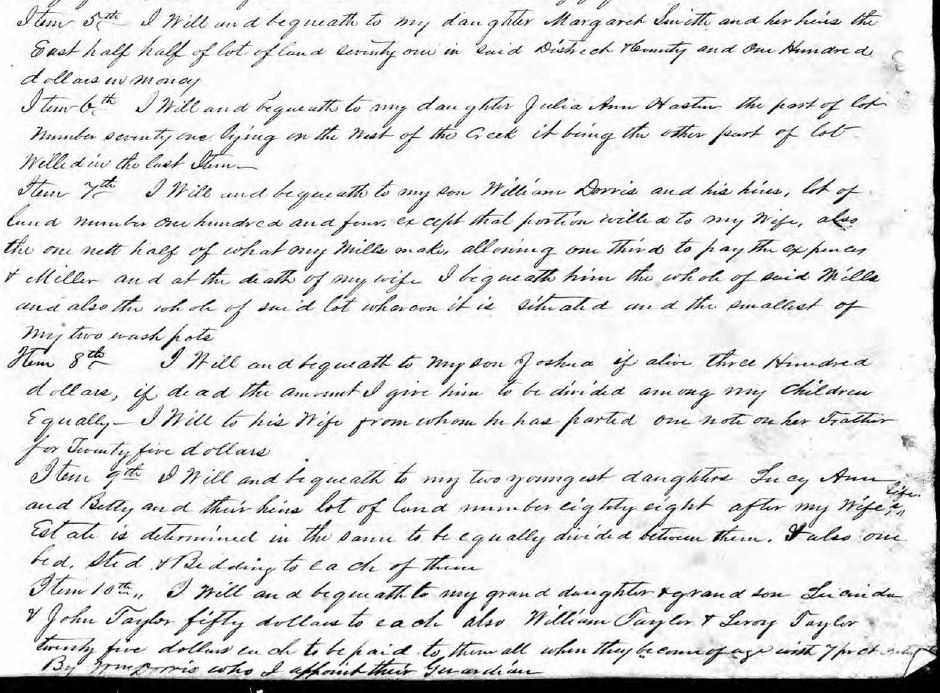 Item 5th I Will and bequeath to my daughter Margaret Smith and her heirs the
East half half of lot of land seventy one in said District & County and One Hundred
dollars in money
Item 6th I Will and bequeath to my daughter Julia Ann Hasten the part of lot
number seventy one lying on the West of the Creek it being the other part of lot
Willed in the last Item
Item 7th I Will and bequeath to my son William Dorris and his hiers, lot of
land number one hundred and four except that portion willed to my Wife, also
the one nett half of what my Mills make allowing one third to pay the expences
& Miller and at the death of my wife I bequeath him the whole of said Mills
and also the whole of said lot whereon it is situated and the smallest of
my two wash pots
Item 8th I Will and bequeath to my son Joshua if alive three Hundred
dollars, if dead the amount I give him to be divided among my Children
Equally - I Will to his Wife from whom he has parted one note on her Father
for Twenty five dollars
Item 9th I Will and bequeath to my two youngest daughters Lucy Ann
and Betty and their heirs lot of land number eighty eight after my Wife, life
Estate is determined in the same to be equally divided between them. & also one
bed, Sted & Bedding to each of them
Item 10th I Will and bequeath to my grand daughter & grand son Lucinda
& John Taylor fifty dollars to each also William Taylor & Leroy Taylor
twenty five dollars each to be paid to them all when they become of age with 7 pr ct
By Wm Dorris who I appoint their Guardian